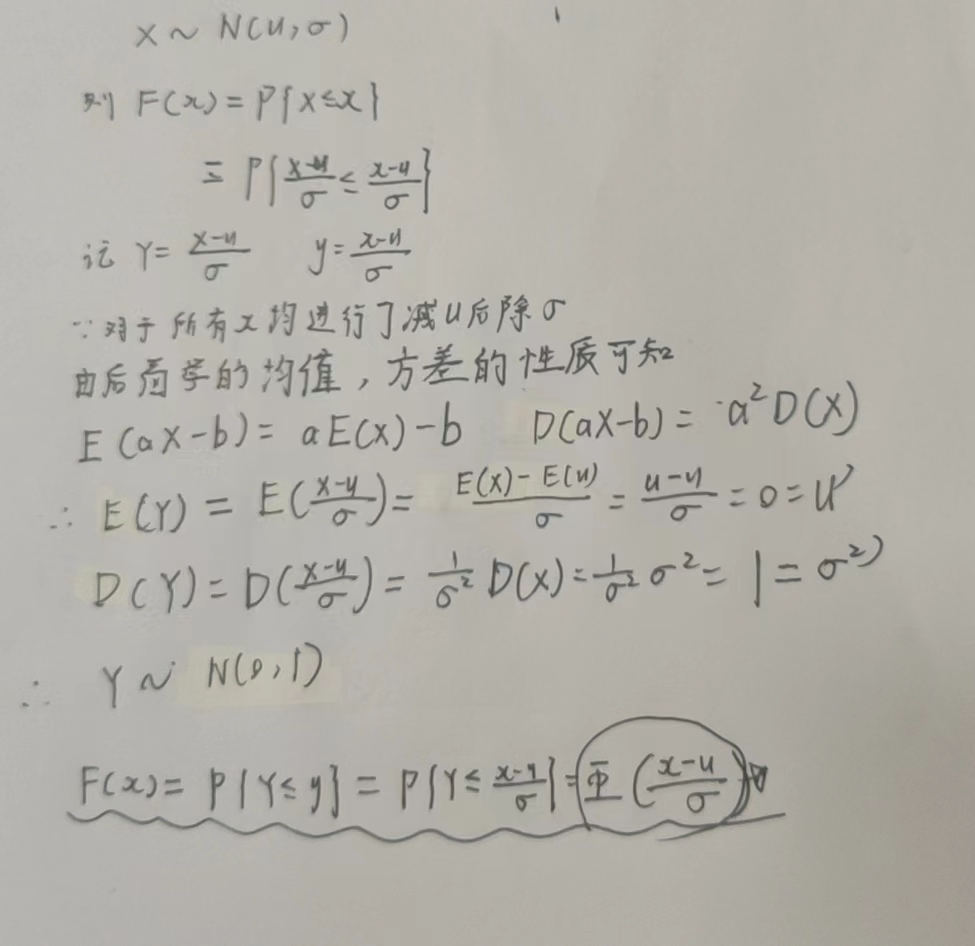 X ~ N(u, σ)
则 F(x) = P{X ≤ x}
= P{(X-u)/σ ≤ (x-u)/σ}
记 Y = (X-u)/σ  y = (x-u)/σ
∵ 对于所有x均进行了减u后除σ
由后面学的均值,方差的性质可知
E(aX-b) = aE(X)-b  D(aX-b) = a²D(X)
∴ E(Y) = E((X-u)/σ) = (E(X)-E(u))/σ = (u-u)/σ = 0 = u'
D(Y) = D((X-u)/σ) = 1/σ² D(X) = 1/σ² σ² = 1 = σ²'
∴ Y ~ N(0,1)
F(x) = P{Y ≤ y} = P{Y ≤ (x-u)/σ} = Φ((x-u)/σ)